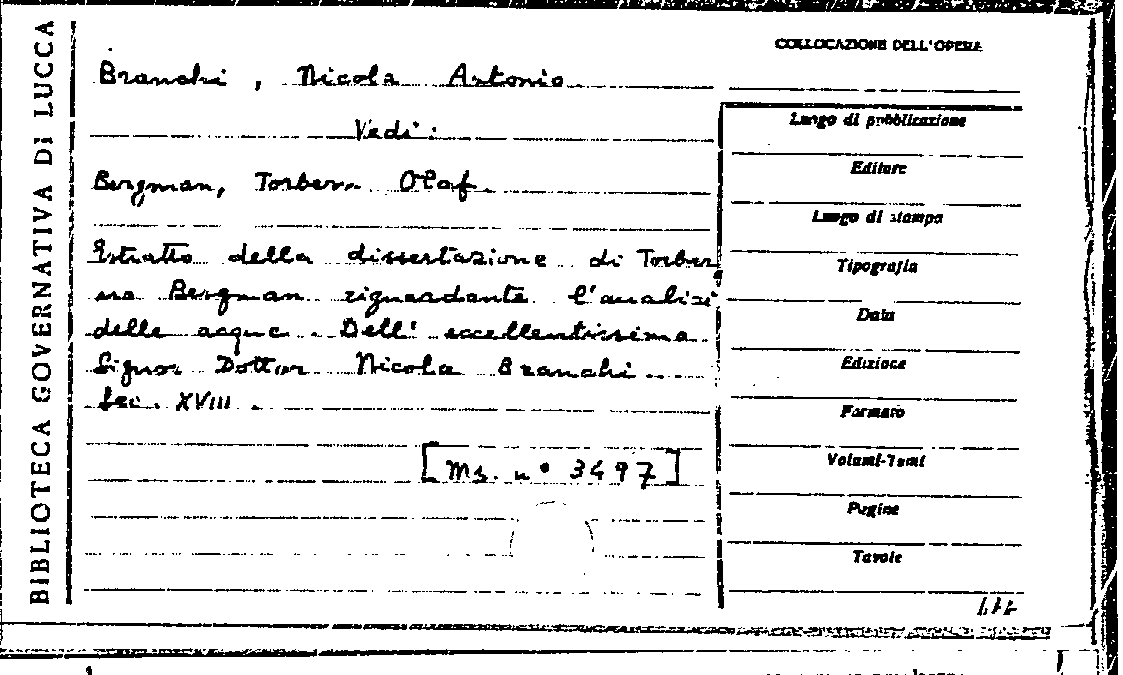 BIBLIOTECA GOVERNATIVA DI LUCCA
Branchi, Nicola Antonio
Vedi:
Bergman, Torbern Olaf.
Estratto della dissertazione di Torber
no Bergman riguardante l'analisi
delle acque. Dell' eccellentissimo
Signor Dottor Nicola Branchi...
Sec. XVIII.
[Ms. n° 3497]
COLLOCAZIONE DELL'OPERA
Luogo di pubblicazione
Editore
Luogo di stampa
Tipografia
Data
Edizione
Formato
Volumi-Tomi
Pagine
Tavole